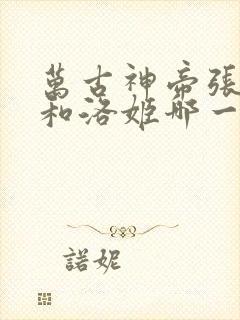 萬古神帝張
和洛姬那一
諾妮